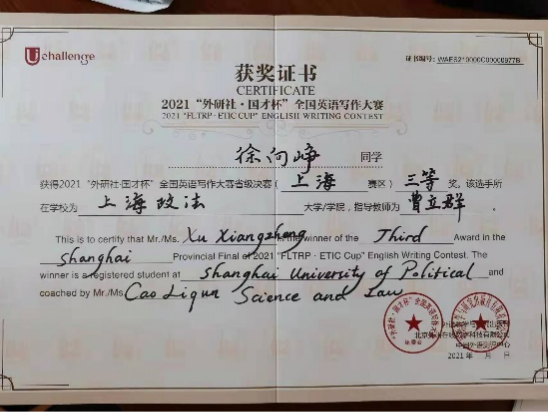 Uchallenge
证书编号: WAES210000C00000977B
获奖证书
CERTIFICATE
2021 “外研社·国才杯” 全国英语写作大赛
2021 "FLTRP · ETIC CUP" ENGLISH WRITING CONTEST
徐向峥 同学
获得2021 “外研社·国才杯” 全国英语写作大赛省级决赛 ( 上海 赛区) 三等 奖, 该选手所
在学校为 上海政法 大学/学院, 指导教师为 曹立群
This is to certify that Mr./Ms. Xu Xiangzheng is the winner of the Third Award in the
Shanghai Provincial Final of 2021 "FLTRP · ETIC Cup" English Writing Contest. The
winner is a registered student at Shanghai University of Political and
coached by Mr./Ms. Cao Liqun Science and Law
2021年 月 日